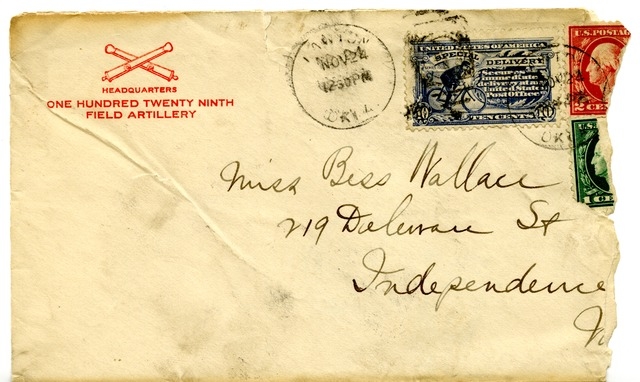 HEADQUARTERS
ONE HUNDRED TWENTY NINTH
FIELD ARTILLERY
LAWTON
NOV 24
1230PM
OKLA.
UNITED STATES OF AMERICA
SPECIAL DELIVERY
Secures
immediate
delivery at a
United States
Post Office
10 TEN CENTS 10
U.S. POSTAG
2 CE
1 CE
NOV 24
OK
Miss Bess Wallace
219 Delaware St
Independence